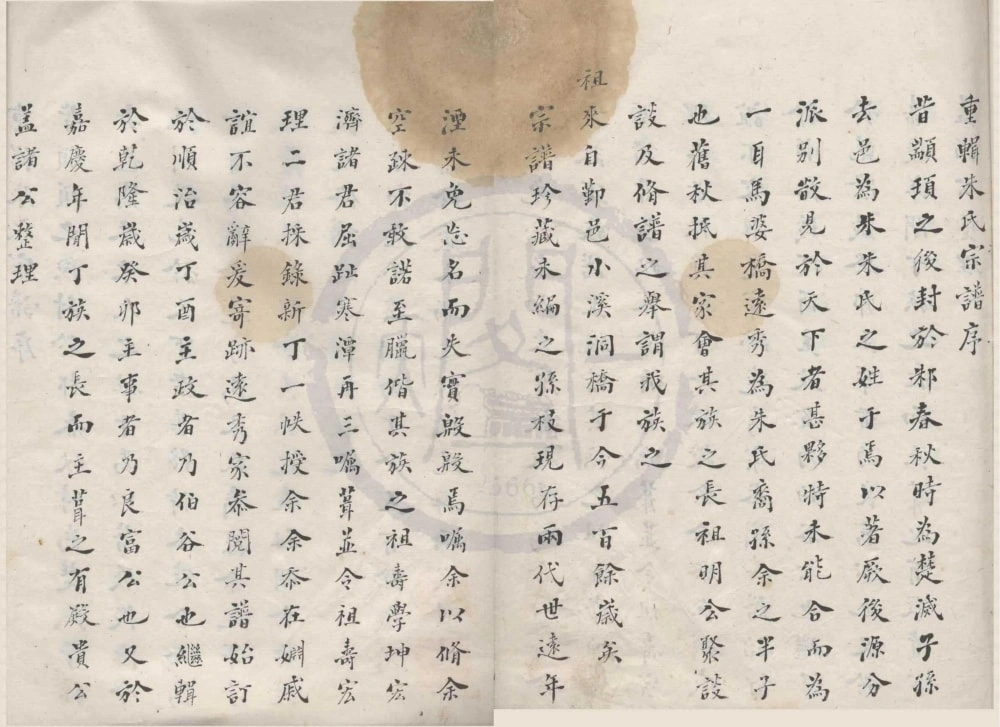 重輯朱氏宗譜序
昔顓頊之後封於邾春秋時為楚滅子孫
去邑為朱朱氏之姓于焉以著厥後源分
派别散見於天下者甚夥特未能合而為
一耳馬婆橋遠秀為朱氏裔孫余之半子
也舊秋抵其家會其族之長祖明公聚談
談及脩譜之舉謂我族之
祖來自鄞邑小溪洞橋于今五百餘歲矣
宗譜珍藏未絹之孫枝現存兩代世遠年
湮未免忘名而失實殷殷焉嘱余以脩余
空疎不敢諾至臘偕其族之祖壽學坤宏
濟諸君屈趾寒潭再三嘱葺並令祖壽宏
理二君採錄新丁一帙授余余忝在婣戚
誼不容辭爰寄跡遠秀家叅閱其譜始訂
於順治歲丁酉主政者乃伯谷公也繼輯
於乾隆歲癸卯主事者乃良富公也又於
嘉慶年間丁族之長而主葺之有殿貴公
盖諸公整理